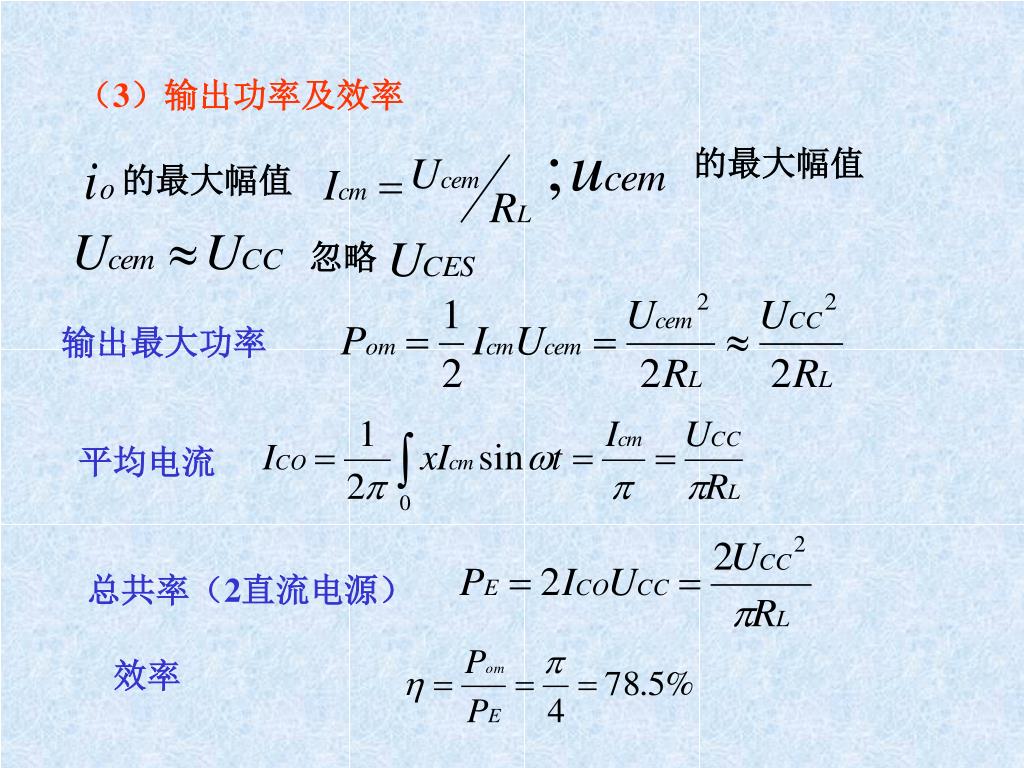 （3）输出功率及效率
i_o 的最大幅值 I_cm = U_cem / R_L ; u_cem 的最大幅值
U_cem ≈ U_CC 忽略 U_CES
输出最大功率 P_om = 1/2 I_cm U_cem = U_cem² / 2R_L ≈ U_CC² / 2R_L
平均电流 I_CO = 1/2π ∫_0 xI_cm sin ωt = I_cm / π = U_CC / πR_L
总共率（2直流电源） P_E = 2I_CO U_CC = 2U_CC² / πR_L
效率 η = P_om / P_E = π / 4 = 78.5%